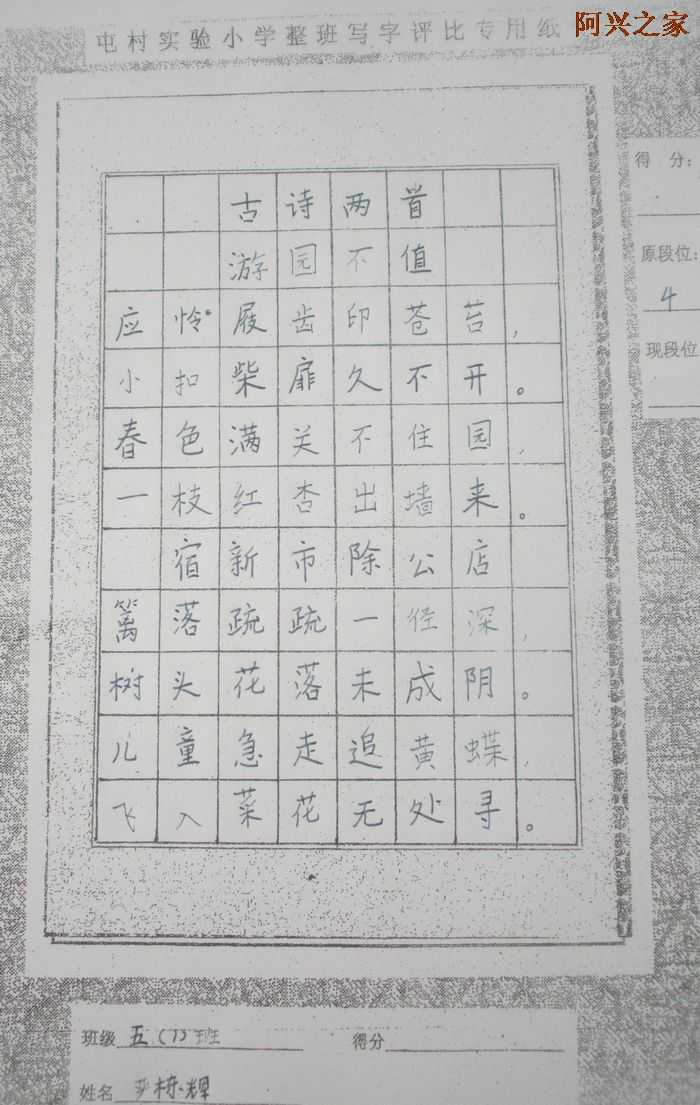 阿兴之家
屯村实验小学整班写字评比专用纸
得 分:
原段位:
4
现段位
古诗两首
游园不值
应怜屐齿印苍苔，
小扣柴扉久不开。
春色满关不住园，
一枝红杏出墙来。
宿新市除公店
篱落疏疏一径深，
树头花落未成阴。
儿童急走追黄蝶，
飞入菜花无处寻。
班级 五(1)班 得分
姓名 栋辉